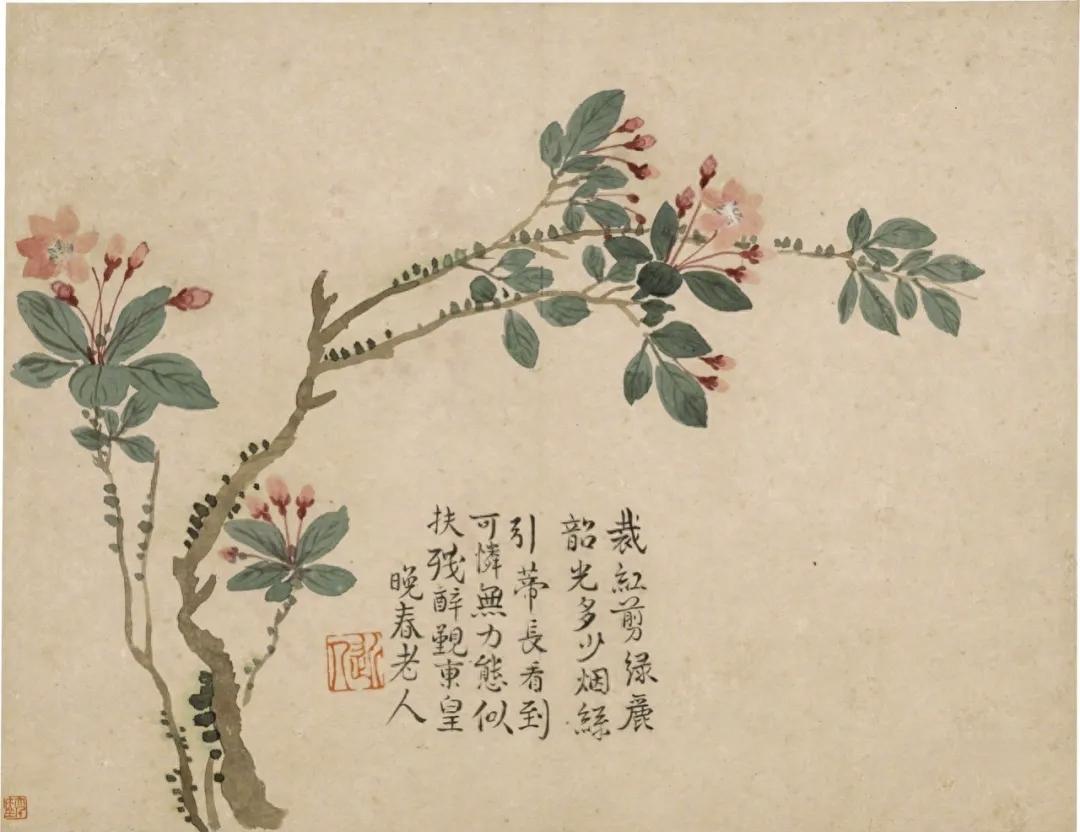 裁紅剪绿麗
韶光多少烟絲
引蒂長看到
可憐無力態似
扶殘醉觐東皇
晚春老人